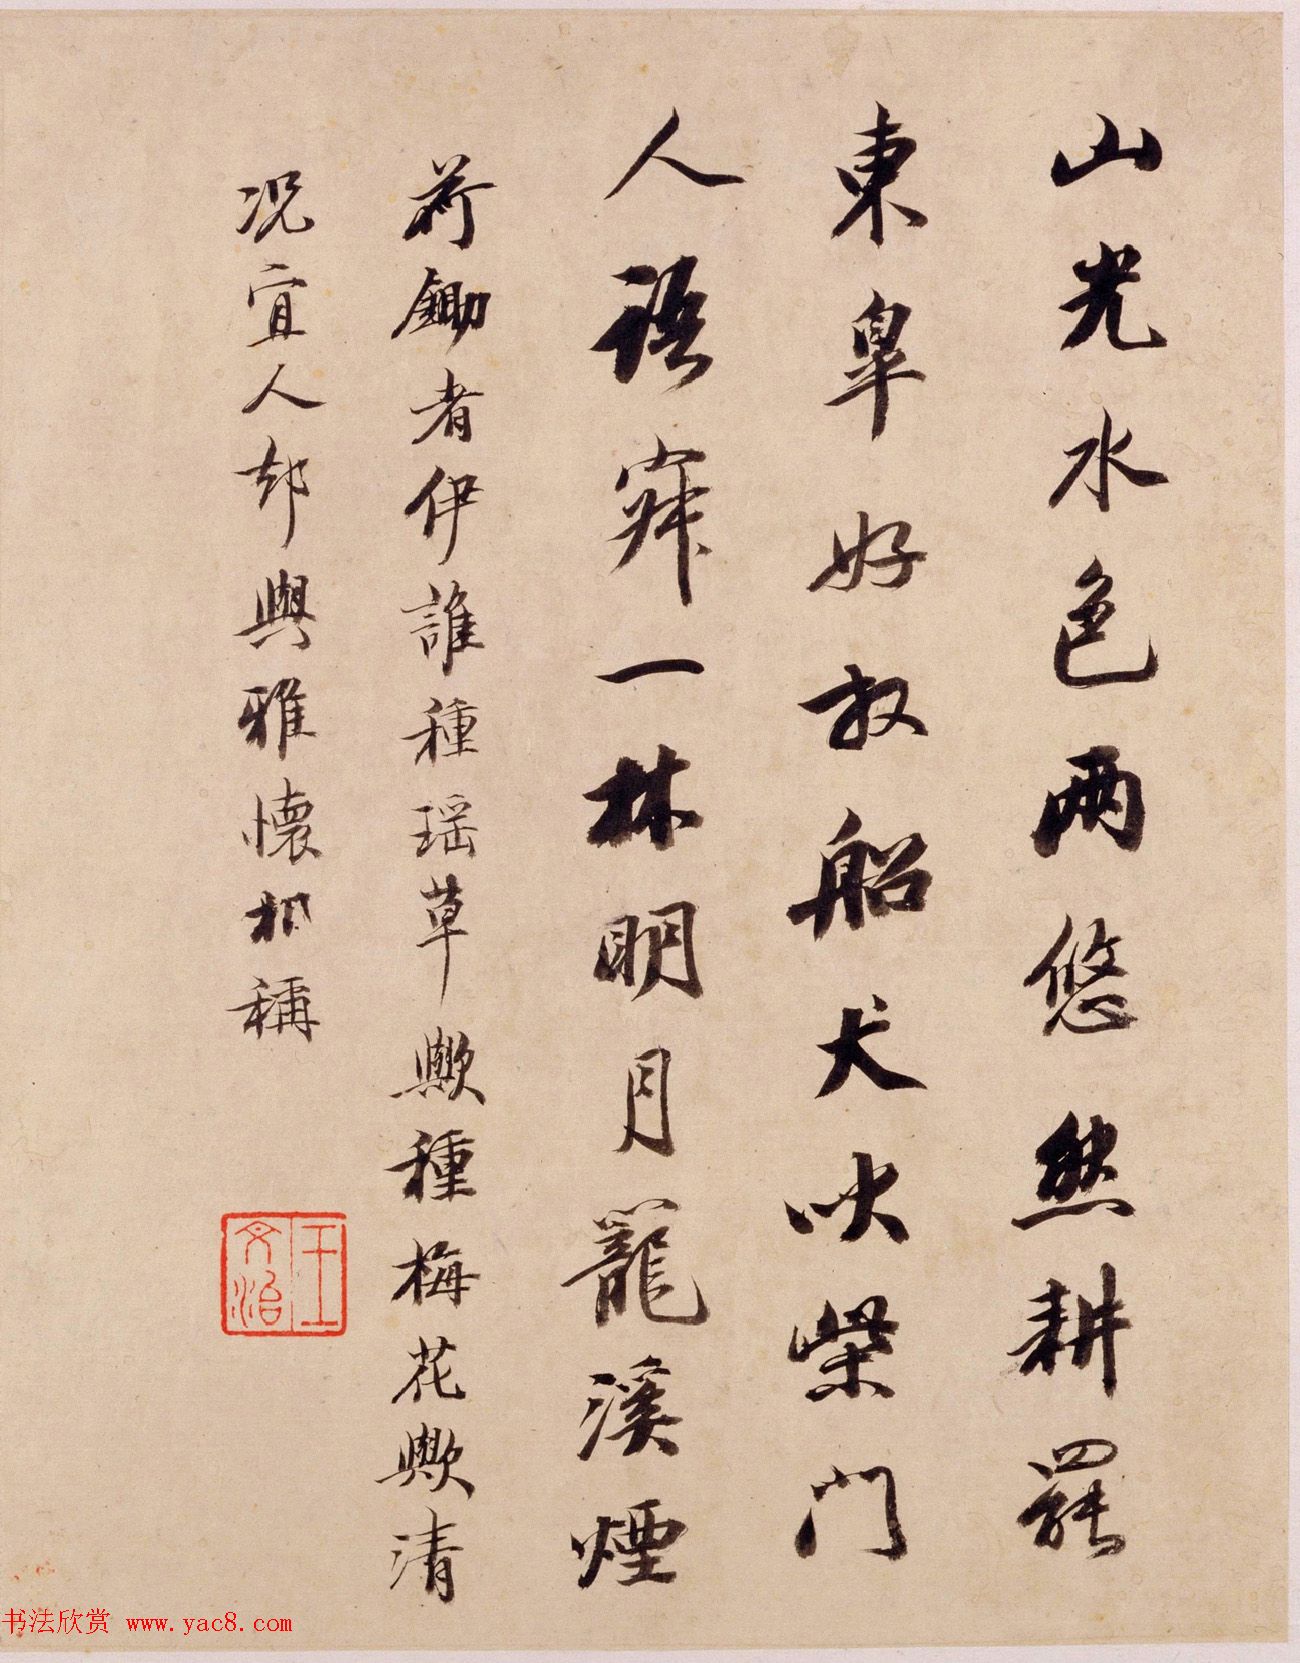 山光水色兩悠然耕罷
東皐好放船犬吠柴門
人語寂一林明月籠溪煙
荷鋤者伊誰種瑶草歟種梅花歟清
况宜人却與雅懷相稱
王文治
书法欣赏 www.yac8.com